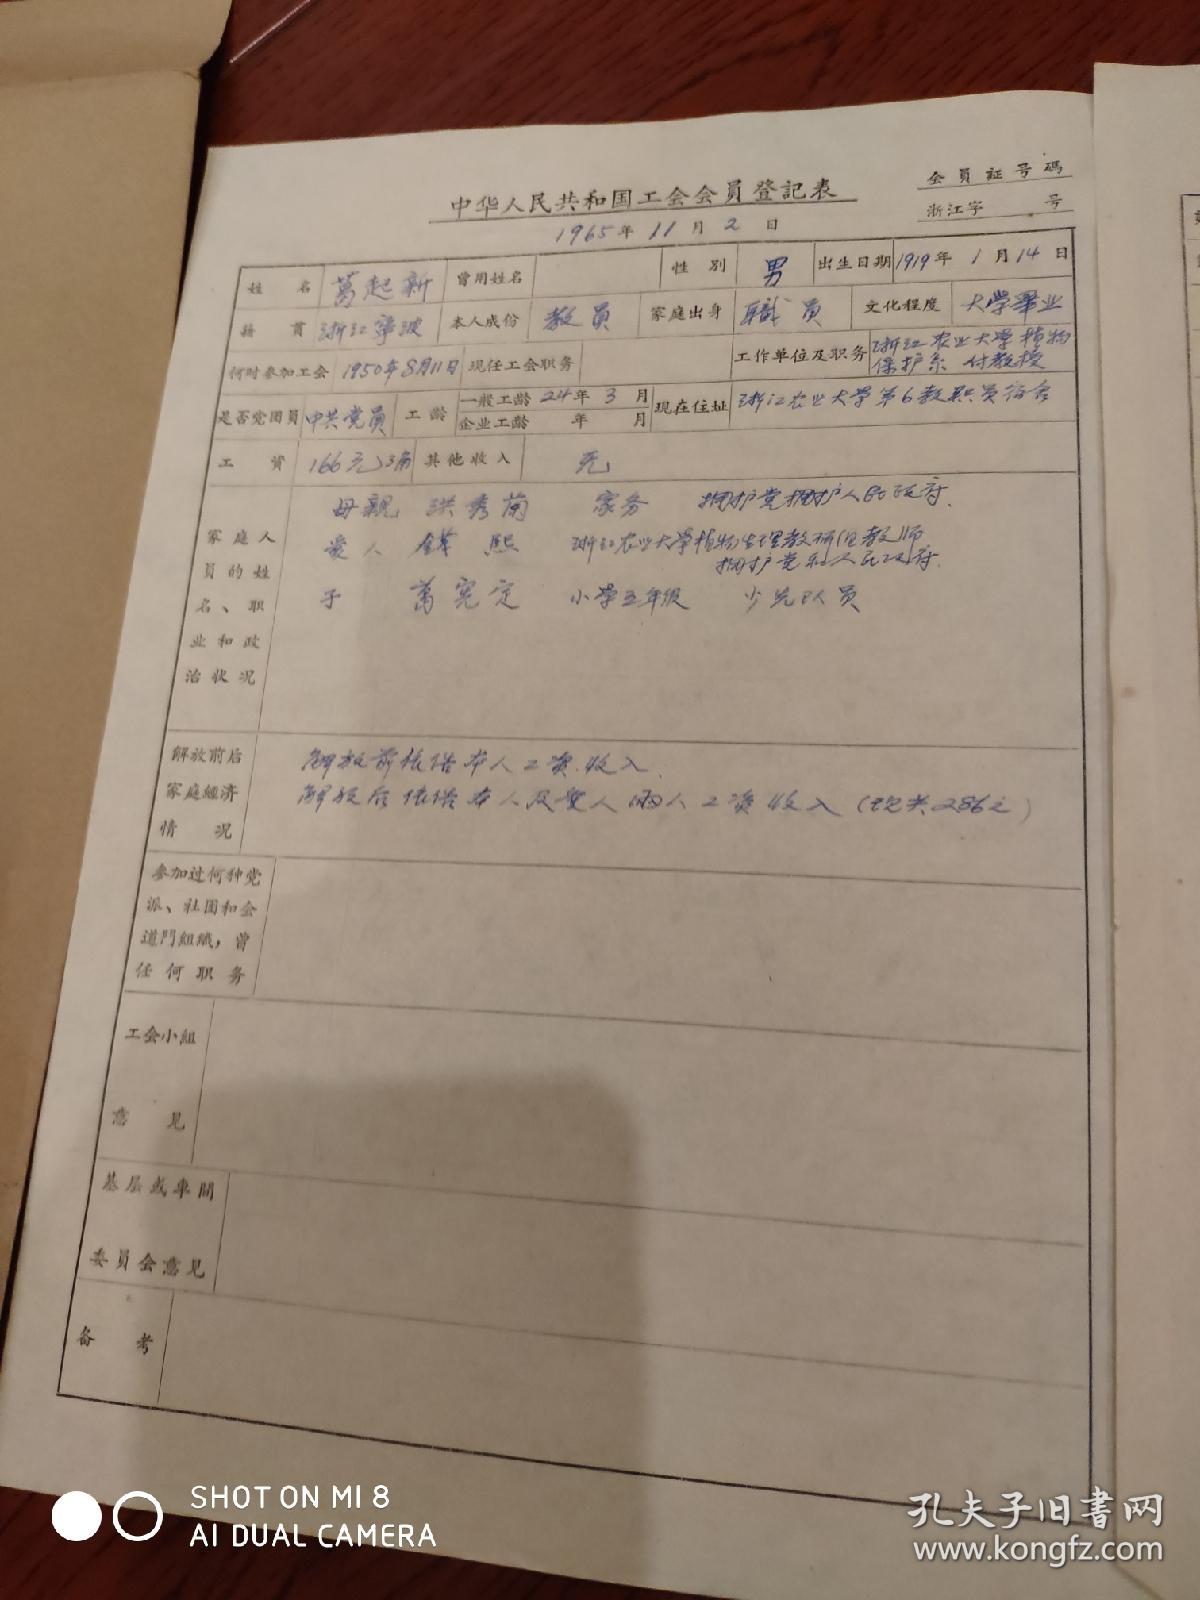 会員証号碼
中华人民共和国工会会員登記表
浙江字 号
1965年11月2日
姓名 葛起新 曾用姓名 性别 男 出生日期 1919年1月14日
籍貫 浙江寧波 本人成份 教員 家庭出身 職員 文化程度 大学畢业
何时参加工会 1950年8月11日 現任工会职务 工作单位及职务 浙江农业大学植物
保护系 付教授
是否党团員 中共党員 工龄 一般工龄 24年3月 現在住址 浙江农业大学第6教职員宿舍
企业工龄 年 月
工資 166元3角 其他收入 无
母親 洪秀菊 家务 拥护党拥护人民政府.
家庭人 爱人 熙 浙江农业大学植物生理教研组教师
拥护党和人民政府.
員的姓
名、职 子 葛宪定 小学五年级 少先队員
业和政
治状况
解放前后 解放前依借本人工资收入.
家庭經济 解放后依借本人及爱人两人工资收入(現共286元)
情况
参加过何种党
派、社团和会
道門組織,曾
任何职务
工会小組
意見
基层或車間
委員会意見
备考
SHOT ON MI 8
AI DUAL CAMERA
孔夫子旧書网
www.kongfz.com